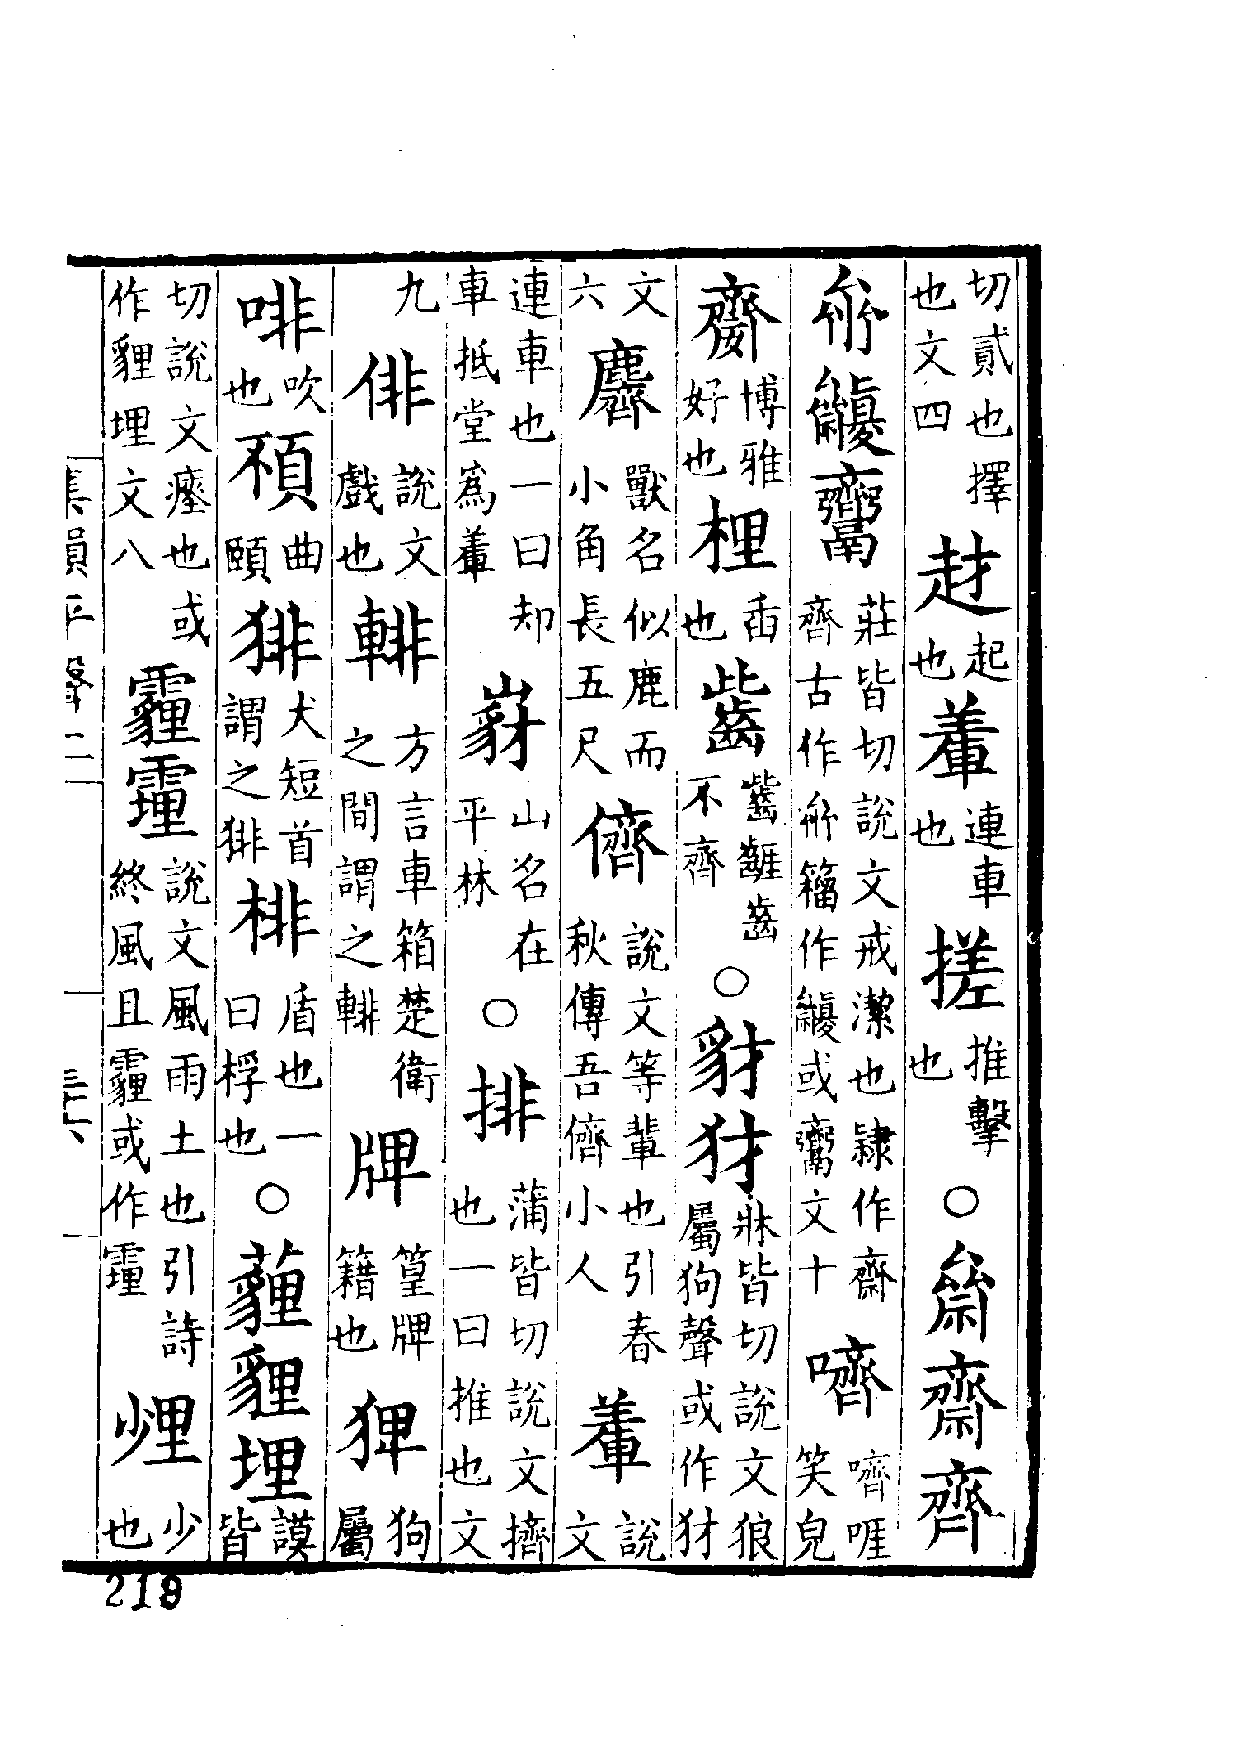 切貳也擇也文四 𧺼 起也 䡨 連車也 搓 推擊也 ○ 亝 齋 齊
莊皆切說文戒潔也隸作齋齊古作 籒作 或 文十 嚌 嚌啀笑皃
齌 博雅好也 梩 臿也 齜 齜齱齒不齊 ○ 豺 犲 牀皆切說文狼屬狗聲或作犲
文六 麡 獸名似鹿而小角長五尺 儕 說文等輩也引春秋傳吾儕小人 䡨 說文
連車也一曰却車抵堂爲䡨 山名在平林 ○ 排 蒲皆切說文擠也一曰推也文
九 俳 說文戲也 輫 方言車箱楚衛之間謂之輫 牌 篁牌籍也 猈 狗屬
啡 吹也 䫠 曲頤 猅 犬短首謂之猅 棑 盾也一曰桴也 ○ 薶 貍 埋 謨皆
切說文瘞也或作貍埋文八 霾 說文風雨土也引詩終風且霾或作 少也
集韻平聲二
219